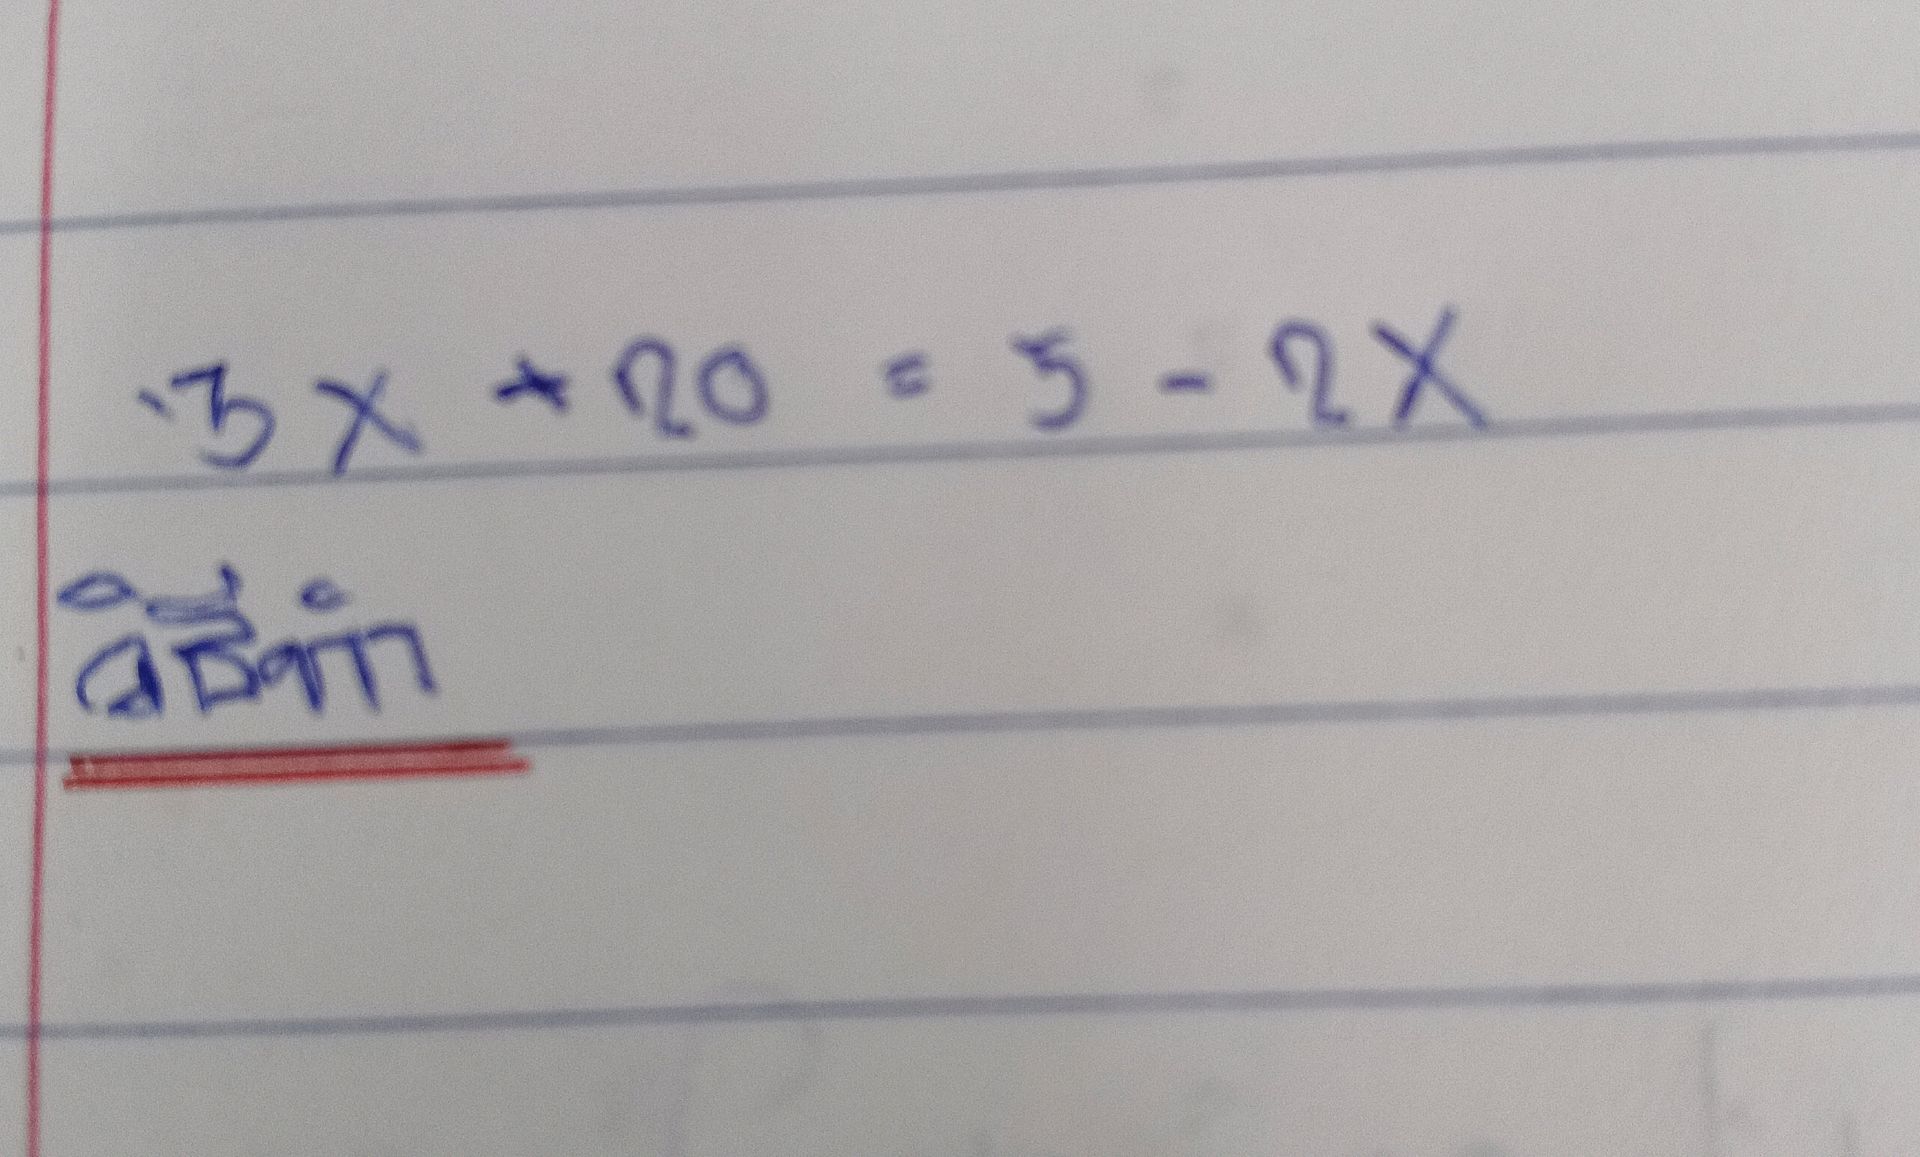 3x + 20 = 5 - 2x
วิธีทำ